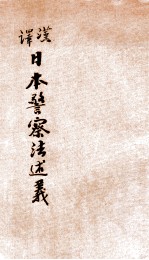 漢譯
日本警察法述義